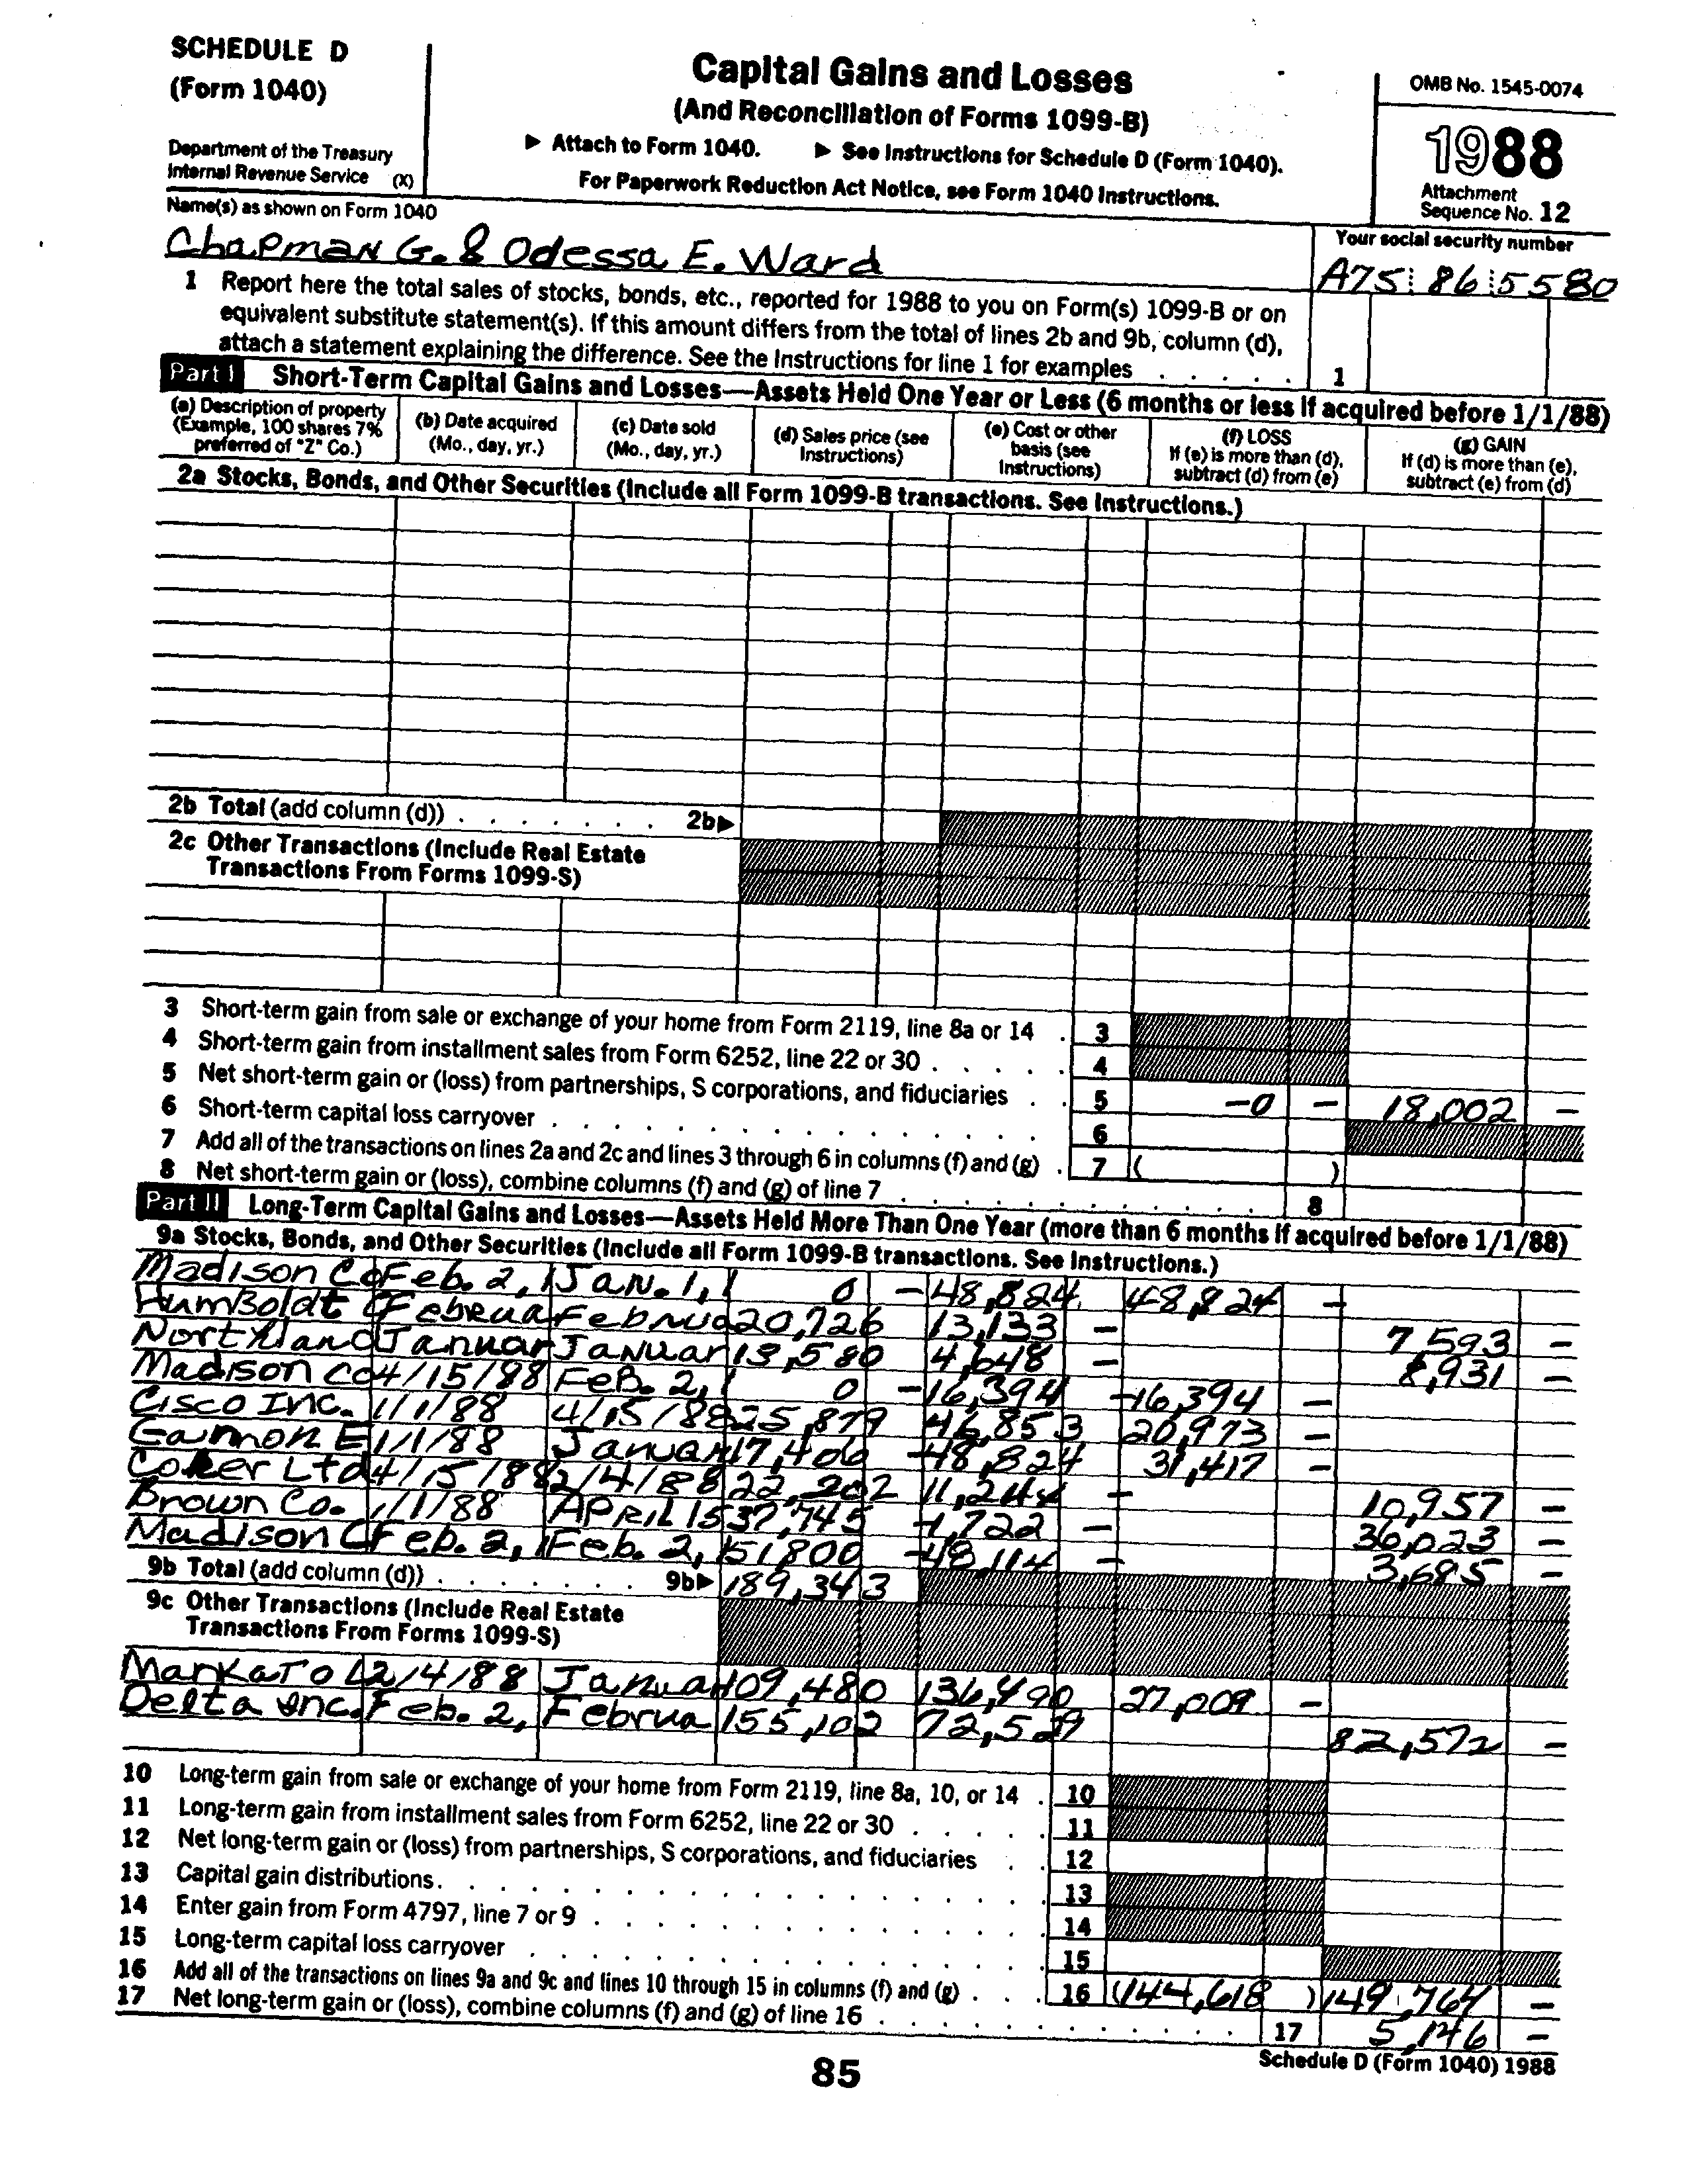 SCHEDULE D
(Form 1040)
Department of the Treasury
Internal Revenue Service (X)
Capital Gains and Losses
(And Reconciliation of Forms 1099-B)
▶ Attach to Form 1040. ▶ See Instructions for Schedule D (Form 1040).
For Paperwork Reduction Act Notice, see Form 1040 Instructions.
OMB No. 1545-0074
1988
Attachment
Sequence No. 12
Name(s) as shown on Form 1040
Chapman G. & Odessa E. Ward
Your social security number
A75 86 5580
1 Report here the total sales of stocks, bonds, etc., reported for 1988 to you on Form(s) 1099-B or on
equivalent substitute statement(s). If this amount differs from the total of lines 2b and 9b, column (d),
attach a statement explaining the difference. See the Instructions for line 1 for examples . . . . . 1
Part I Short-Term Capital Gains and Losses—Assets Held One Year or Less (6 months or less if acquired before 1/1/88)
(a) Description of property
(Example, 100 shares 7%
preferred of "Z" Co.)
(b) Date acquired
(Mo., day, yr.)
(c) Date sold
(Mo., day, yr.)
(d) Sales price (see
Instructions)
(e) Cost or other
basis (see
Instructions)
(f) LOSS
If (e) is more than (d),
subtract (d) from (e)
(g) GAIN
If (d) is more than (e),
subtract (e) from (d)
2a Stocks, Bonds, and Other Securities (Include all Form 1099-B transactions. See Instructions.)
2b Total (add column (d)) . . . . . . . 2b▶
2c Other Transactions (Include Real Estate
Transactions From Forms 1099-S)
3 Short-term gain from sale or exchange of your home from Form 2119, line 8a or 14 . 3
4 Short-term gain from installment sales from Form 6252, line 22 or 30 . . . . . 4
5 Net short-term gain or (loss) from partnerships, S corporations, and fiduciaries . . 5 -0 - 18,002 -
6 Short-term capital loss carryover . . . . . . . . . . . . . . . 6
7 Add all of the transactions on lines 2a and 2c and lines 3 through 6 in columns (f) and (g) . 7 ( )
8 Net short-term gain or (loss), combine columns (f) and (g) of line 7 . . . . . . . . . . . 8
Part II Long-Term Capital Gains and Losses—Assets Held More Than One Year (more than 6 months if acquired before 1/1/88)
9a Stocks, Bonds, and Other Securities (Include all Form 1099-B transactions. See Instructions.)
Madison Co Feb. 2, 1 Jan. 1, 1 0 - 48,824 48,824 -
Humboldt C Februa Februa 20,726 13,133 - 7,593 -
Northland Januar Januar 13,580 4,648 - 8,931 -
Madison Co 4/15/88 Feb. 2, 1 0 - 16,394 - 16,394 -
Cisco Inc. 1/1/88 4/15/88 25,879 46,853 20,973 -
Garmon E 1/1/88 Januar 17,406 - 48,824 31,417 -
Coker Ltd 4/15/88 2/4/88 22,202 11,244 - 10,957 -
Brown Co. 1/1/88 April 15 37,745 - 1,722 - 36,023 -
Madison C Feb. 2, 1 Feb. 2, 1 51,800 - 48,114 - 3,685 -
9b Total (add column (d)) . . . . . . . 9b▶ 189,343
9c Other Transactions (Include Real Estate
Transactions From Forms 1099-S)
Markato L 2/4/88 Januar 109,480 136,490 27,009 -
Delta Inc. Feb. 2, Februa 155,102 72,529 82,572 -
10 Long-term gain from sale or exchange of your home from Form 2119, line 8a, 10, or 14 . 10
11 Long-term gain from installment sales from Form 6252, line 22 or 30 . . . . . 11
12 Net long-term gain or (loss) from partnerships, S corporations, and fiduciaries . . 12
13 Capital gain distributions. . . . . . . . . . . . . . . . . . 13
14 Enter gain from Form 4797, line 7 or 9 . . . . . . . . . . . . . 14
15 Long-term capital loss carryover . . . . . . . . . . . . . . . 15
16 Add all of the transactions on lines 9a and 9c and lines 10 through 15 in columns (f) and (g) . . . 16 (144,618 ) 149,764 -
17 Net long-term gain or (loss), combine columns (f) and (g) of line 16 . . . . . . . . . . . . 17 5,146 -
85
Schedule D (Form 1040) 1988